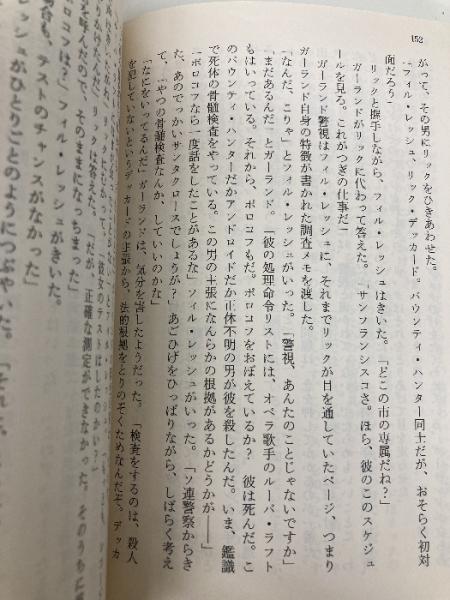 152
がって、その男にリックをひきあわせた。
「フィル・レッシュ、リック・デッカード。バウンティ・ハンター同士だが、おそらく初対
面だろう」
リックと握手しながら、フィル・レッシュはきいた。「どこの市の専属だね?」
ガーランドがリックに代わって答えた。「サンフランシスコさ。ほら、彼のこのスケジュ
ールを見ろ。これがつぎの仕事だ」
ガーランド警視はフィル・レッシュに、それまでリックが目を通していたページ、つまり
ガーランド自身の特徴が書かれた調査メモを渡した。
「なんだ、こりゃ」とフィル・レッシュがいった。「警視、あんたのことじゃないですか」
「まだあるんだ」とガーランド。「彼の処理命令リストには、オペラ歌手のルーバ・ラフト
もはいっている。それから、ポロコフもだ。ポロコフをおぼえているか? 彼は死んだ。こ
のバウンティ・ハンターだかアンドロイドだか正体不明の男が彼を殺したんだ。いま、鑑識
で死体の骨髄検査をやっている。この男の主張になんらかの根拠があるかどうかが――」
「ポロコフなら一度話をしたことがあるな」フィル・レッシュがいった。「ソ連警察からき
た、あのでっかいサンタクロースでしょうが?」あごひげをひっぱりながら、しばらく考え
て、「やつの骨髄検査なんか、していいのかな」
「なにをいってるんだ」ガーランドは、気分を害したようだった。「検査をするのは、殺人
を犯していないというデッカードの主張から、法的根拠をとりのぞくためなんだぞ。デッカ
リックは答えた。「だが、正確な測定ができなかった。そのうちに
彼女のテストはしたのかい?」
そのまま
ポロコフは?」フィル・レッシュがきいた。
も、テストのチャンスがなかった」
レッシュがひとりごとのようにつぶやいた。